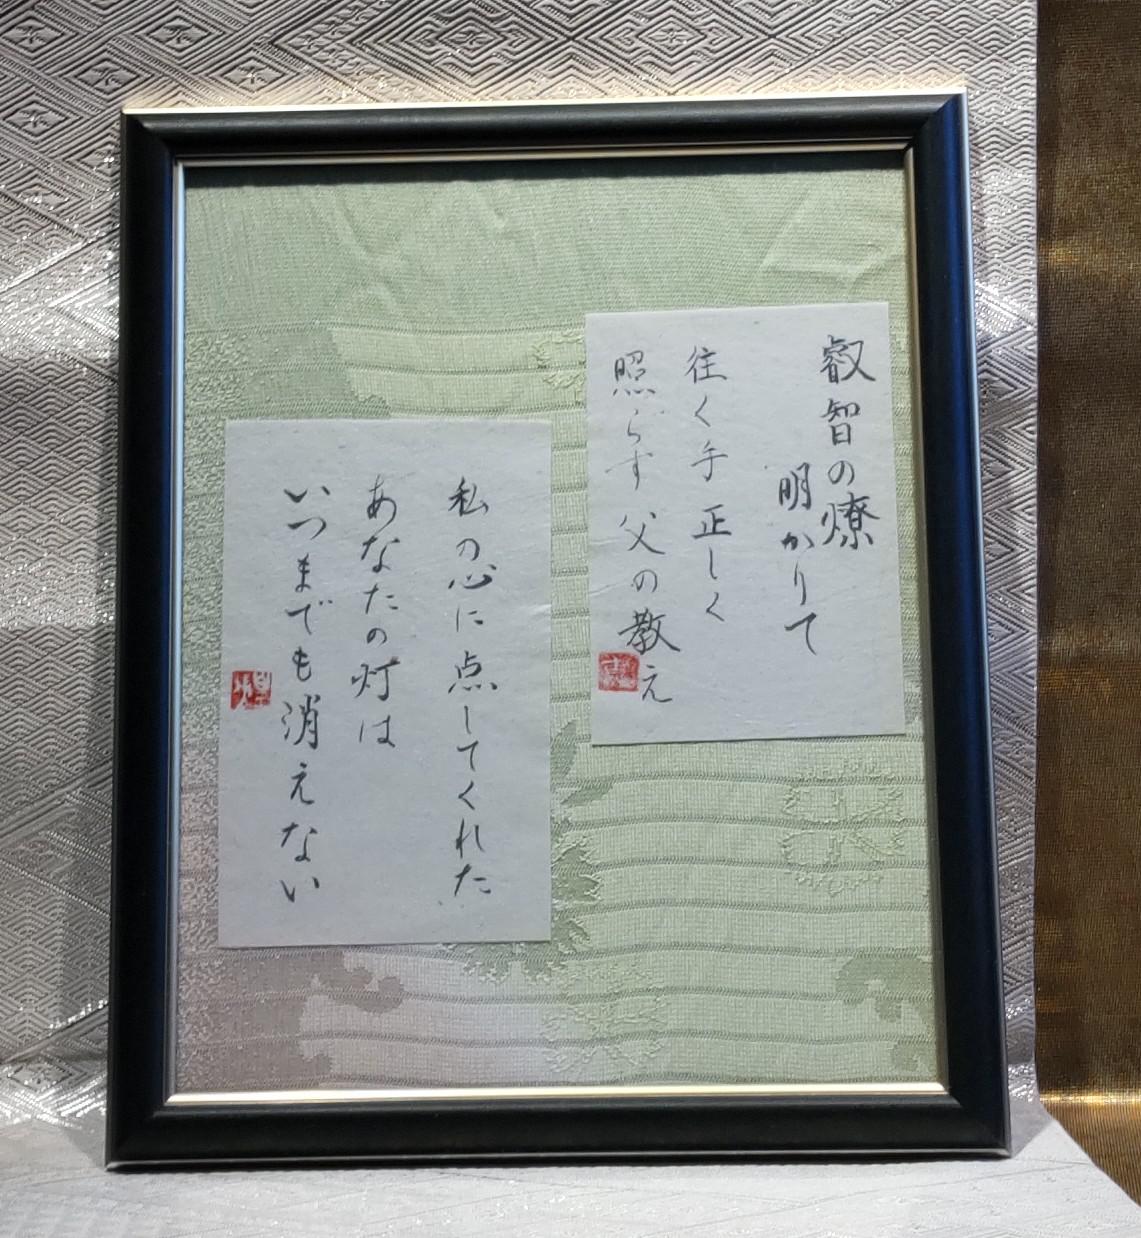 叡智の燎
明かりて
往く手 正しく
照らす 父の教え
私の心に 点してくれた
あなたの灯は
いつまでも消えない